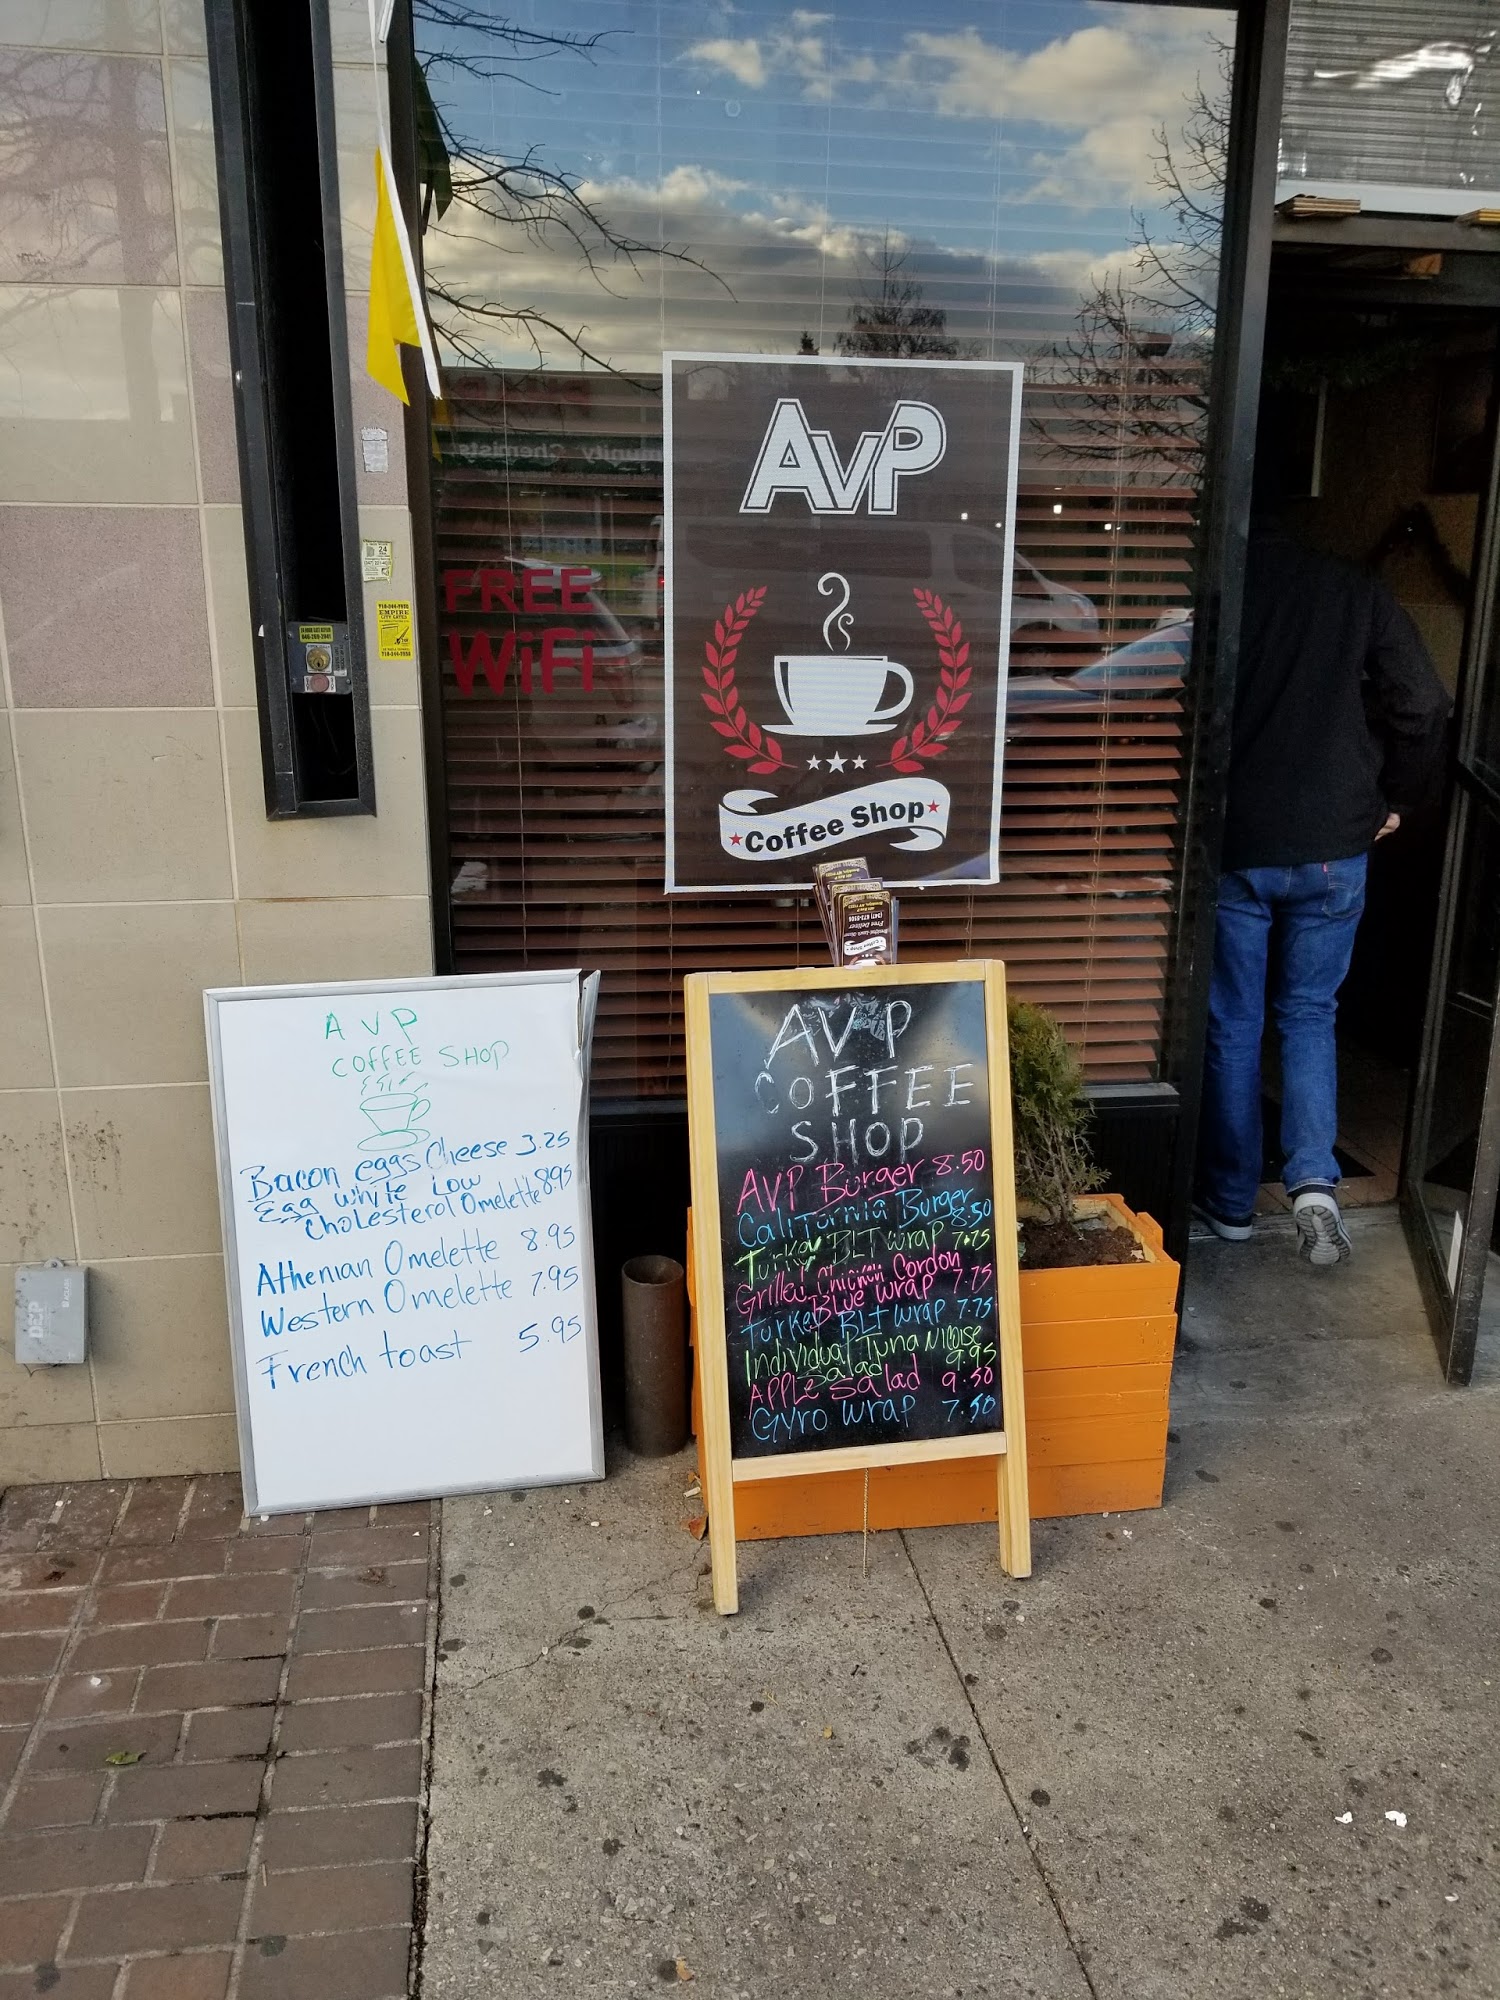 AVP
FREE
WiFi
Coffee Shop
24
718-244-7858
EMPIRE
CITY GATES
718-244-7858
Free Delivery
AVP
COFFEE SHOP
Bacon eggs Cheese 3.25
Egg white Low
Cholesterol Omelette 8.95
Athenian Omelette 8.95
Western Omelette 7.95
French toast 5.95
AVP
COFFEE
SHOP
AVP Burger 8.50
California Burger
8.50
Turkey BLT wrap 7.75
Grilled Chicken Cordon
Blue wrap 7.75
Turkey BLT wrap 7.75
Individual Tuna Nicoise
Salad 9.95
APPLE Salad 9.50
Gyro wrap 7.50
DEP